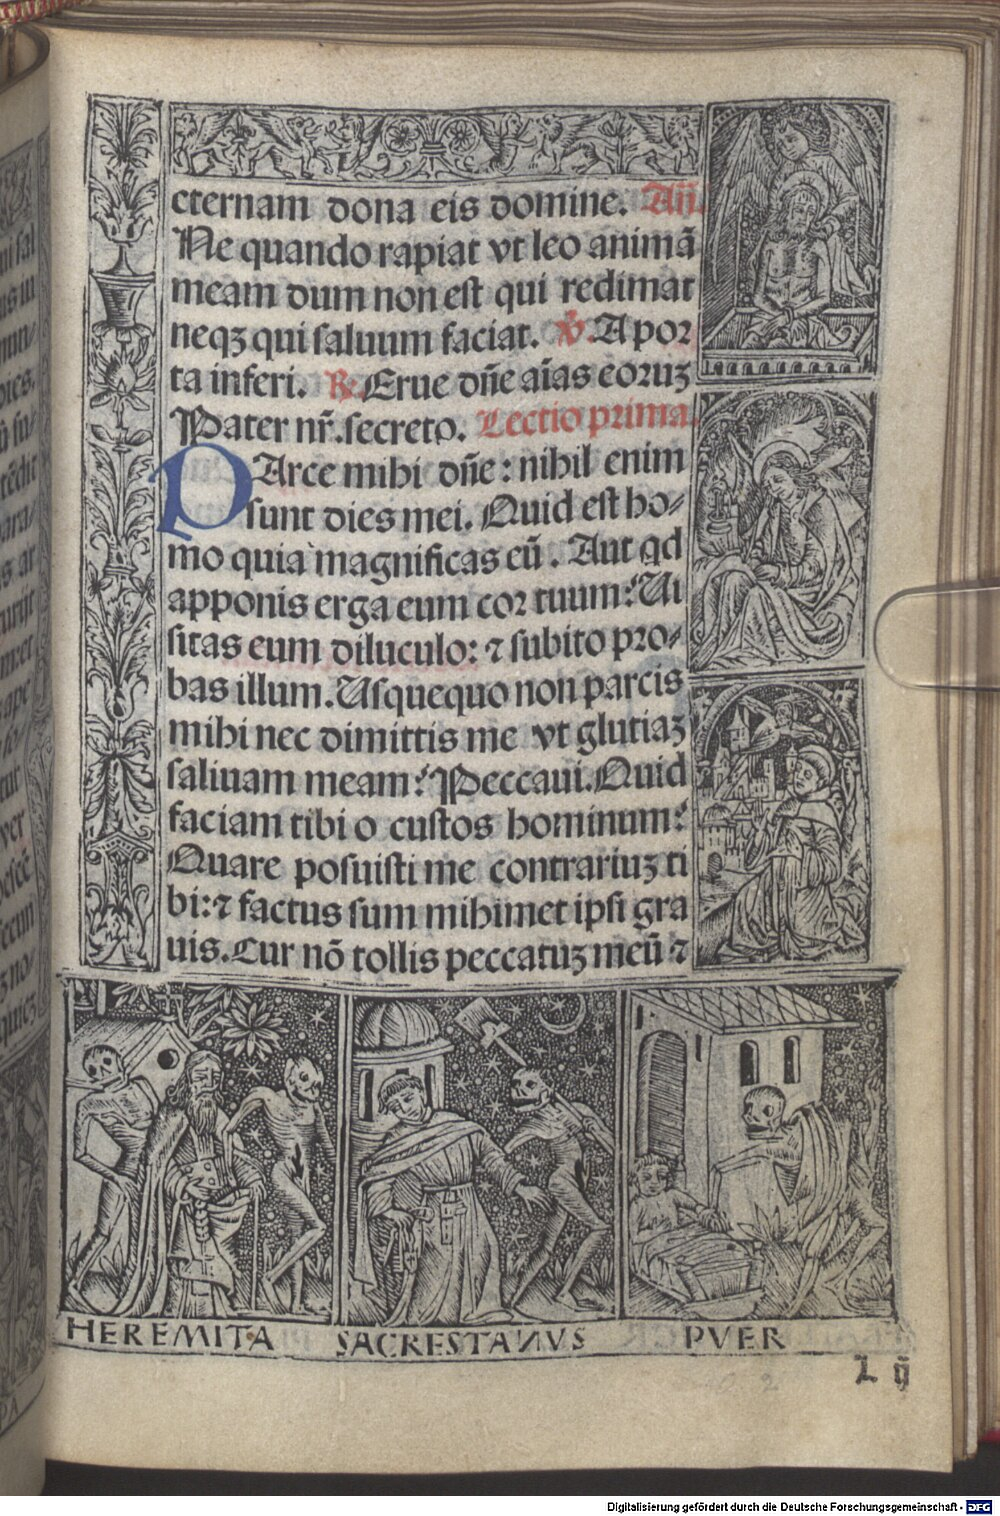 eternam dona eis domine. Añ.
Ne quando rapiat vt leo animã
meam dum non est qui redimat
neqʒ qui saluum faciat. ℣. A poꝛ
ta inferi. ℟. Erue dñe aĩas eoruʒ
Pater nr̃. secreto. Lectio prima.
PArce mihi dñe: nihil enim
sunt dies mei. Quid est ho-
mo quia magnificas eũ. Aut qd
apponis erga eum coꝛ tuum? Ui
sitas eum diluculo: ⁊ subito pro-
bas illum. Usquequo non parcis
mihi nec dimittis me vt glutiaʒ
saliuam meam? Peccaui. Quid
faciam tibi o custos hominum?
Quare posuisti me contrariuʒ ti
bi: ⁊ factus sum mihimet ipsi gra
uis. Cur nõ tollis peccatuʒ meũ ⁊
HEREMITA SACRESTANVS PVER
L ij
Digitalisierung gefördert durch die Deutsche Forschungsgemeinschaft - DFG